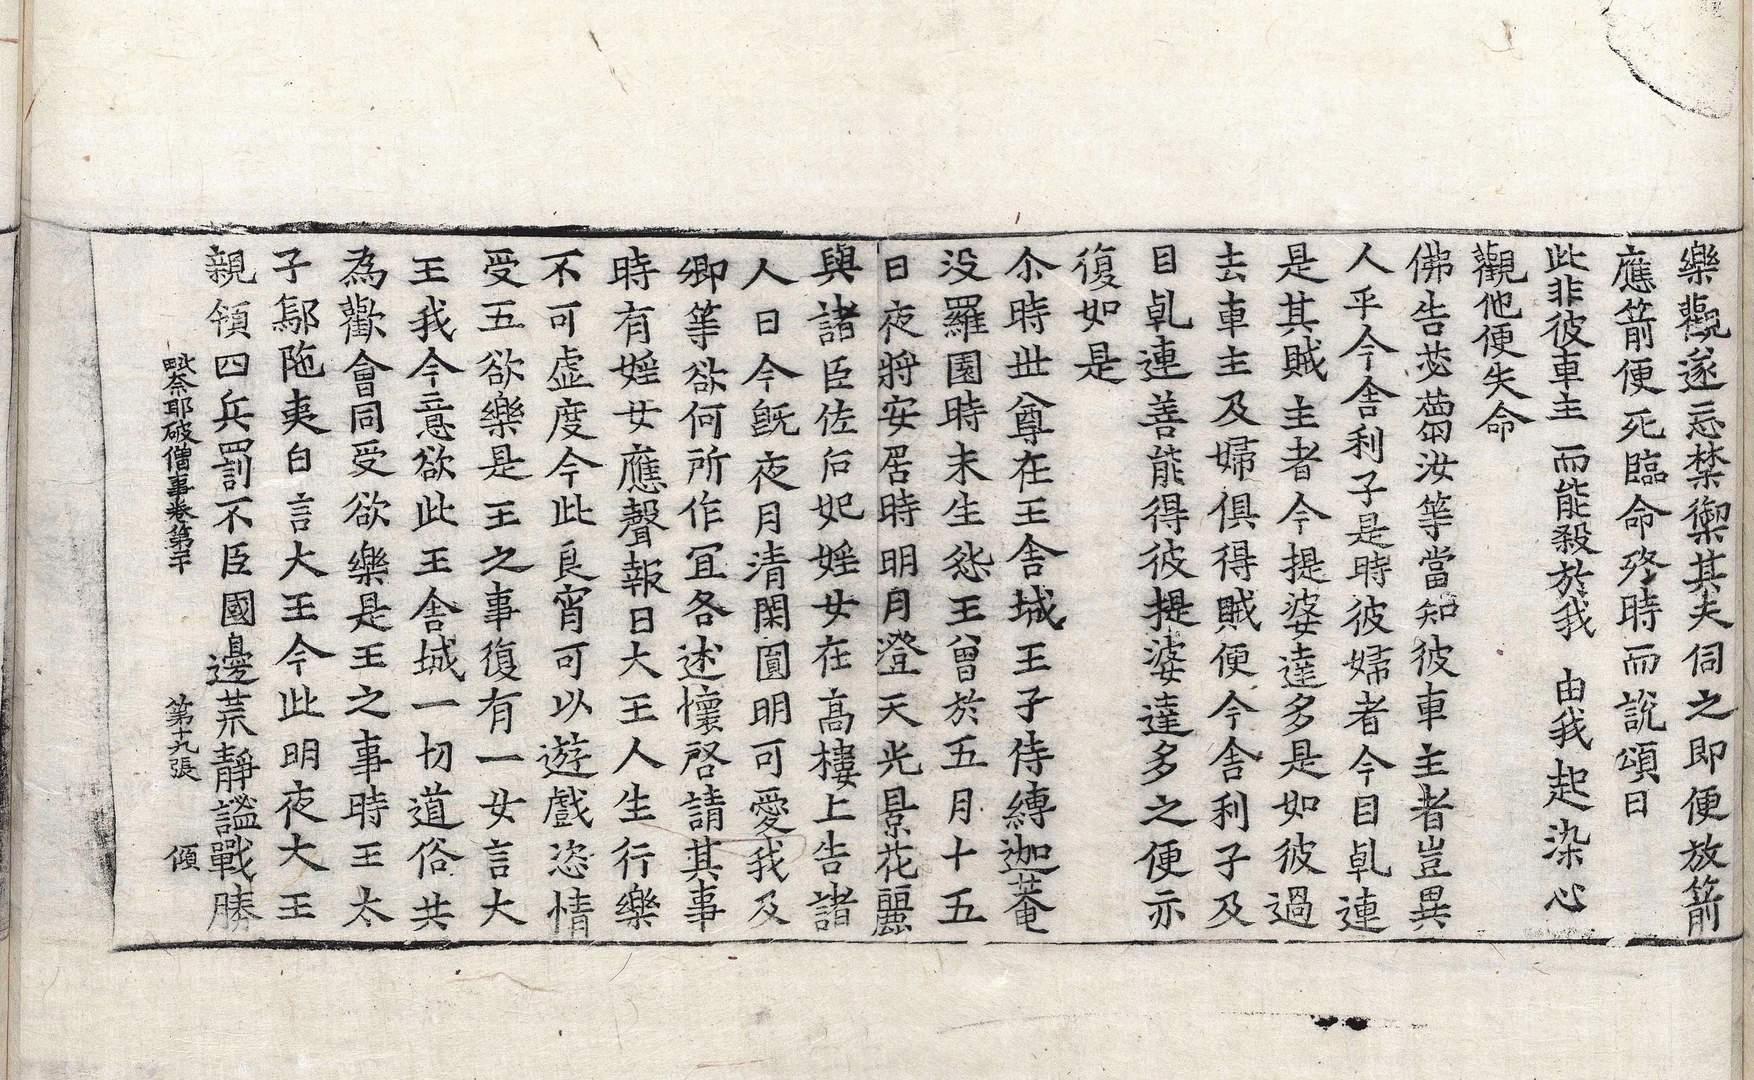 樂觀遂忘禁禦其夫伺之即便放箭
應箭便死臨命終時而說頌曰
此非彼車主　而能殺於我　由我起染心
觀他便失命
佛告苾蒭汝等當知彼車主者豈異
人乎今舍利子是時彼婦者今目乹連
是其賊主者今提婆達多是如彼過
去車主及婦俱得賊便今舍利子及
目乹連善能得彼提婆達多之便亦
復如是
尒時世尊在王舍城王子侍縳迦菴
没羅園時未生怨王曾於五月十五
日夜將安居時明月澄天光景花麗
與諸臣佐后妃婬女在高樓上告諸
人曰今旣夜月清閑圎明可愛我及
卿等欲何所作冝各述懷啓請其事
時有婬女應聲報曰大王人生行樂
不可虛度今此良宵可以遊戲恣情
受五欲樂是王之事復有一女言大
王我今意欲此王舍城一切道俗共
為歡會同受欲樂是王之事時王太
子鄔陁夷白言大王今此明夜大王
親領四兵罰不臣國邊荒靜謐戰勝
毗奈耶破僧事卷第二十　第十九張　傾